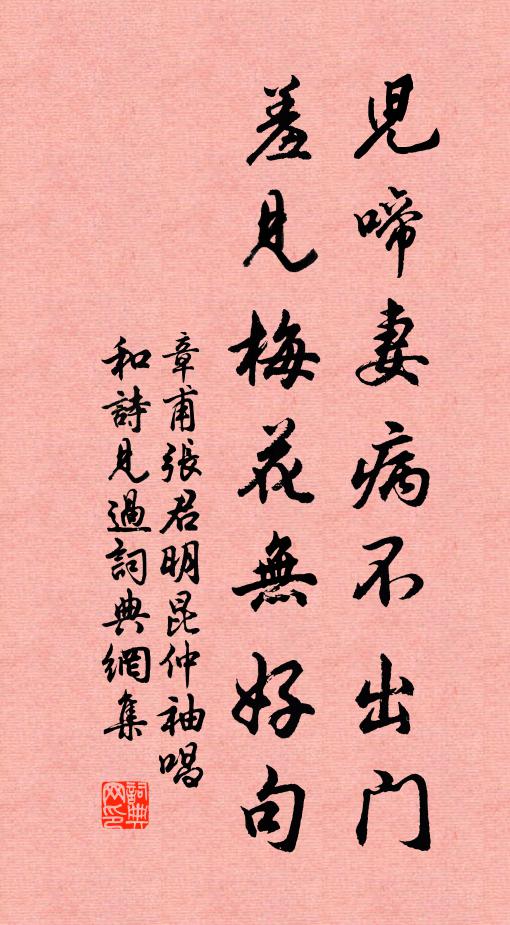 兒啼妻病不出門
羞見梅花無好句
章甫張君明昆仲袖唱
和詩見過詞典網集
詞典
网印